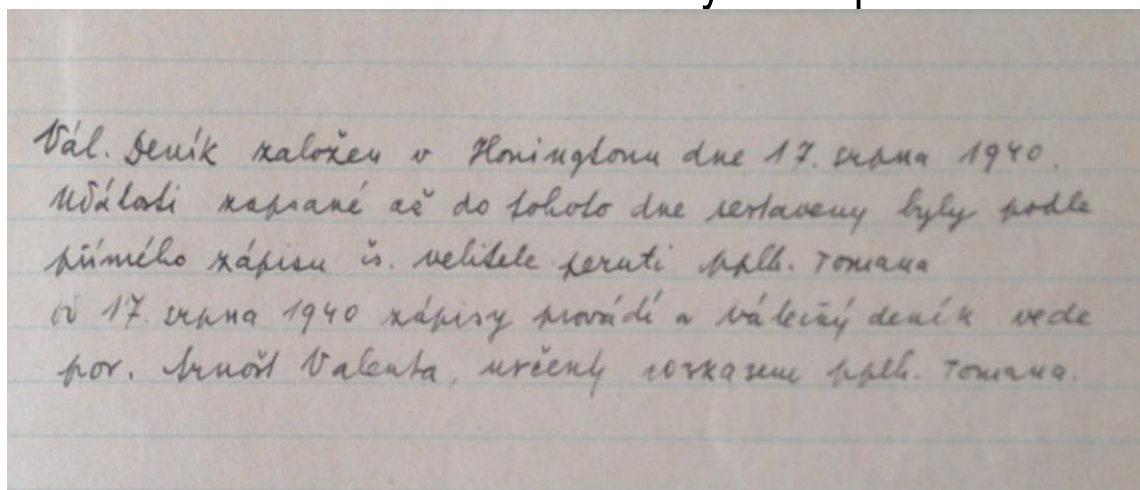 Vál. Deník založen v Honingtonu dne 17. srpna 1940.
Události zapsané až do tohoto dne sestaveny byly podle
přímého zápisu čs. velitele peruti pplk. Tomana
od 17. srpna 1940 zápisy provádí a válečný deník vede
por. Arnošt Valenta, určený rozkazem pplk. Tomana.